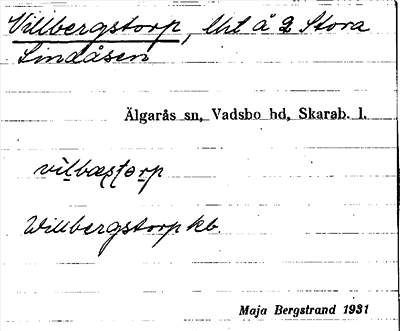 Villbergstorp, lht å 2 Stora
Lindåsen
Älgarås sn, Vadsbo hd, Skarab. l.
Willbergstorp kb.
Maja Bergstrand 1931